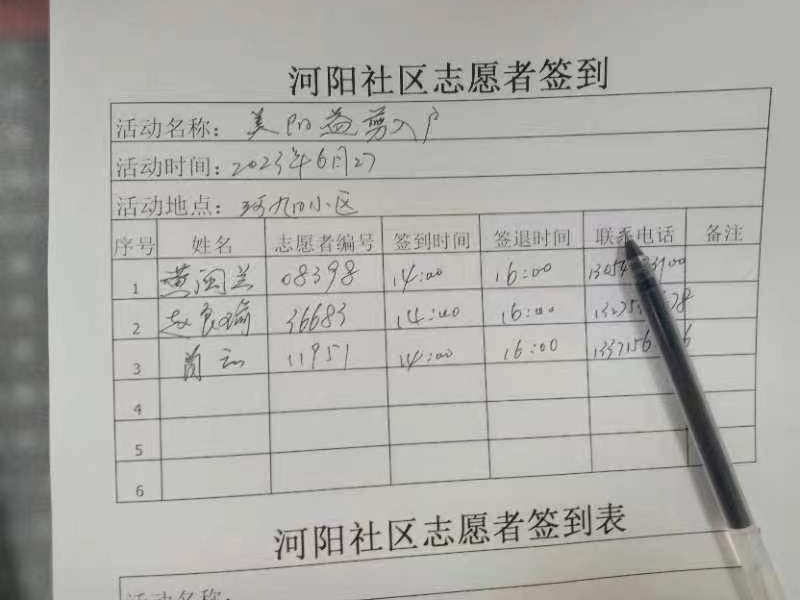 河阳社区志愿者签到
活动名称：美阳益剪入户
活动时间：2023年6月27
活动地点：河阳小区
序号 姓名 志愿者编号 签到时间 签退时间 联系电话 备注
1 黄闽兰 08398 14:00 16:00
2 赵良瑜 36683 14:00 16:00
3 11951 14:00 16:00
4
5
6
河阳社区志愿者签到表
活动名称：